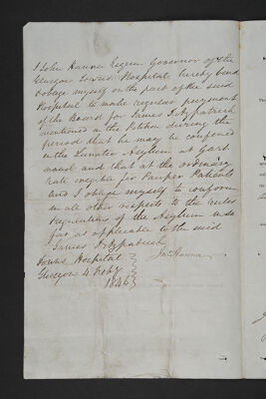 I John Hanna Esquire Governor of the
Glasgow Towns Hospital hereby bind
& oblige myself on the part of the said
Hospital to make regular payment
of the Board for James Fitzpatrick
mentioned in the Petition during the
period that he may be confined
in the Lunatic Asylum at Gart
navel and that at the ordinary
rate exigible for Pauper Patients
and I oblige myself to conform
in all other respects to the rules
Regulations of the Asylum in so
far as applicable to the said
James Fitzpatrick
Towns Hospital
Glasgow 4 Feby
1846
Jn Hanna